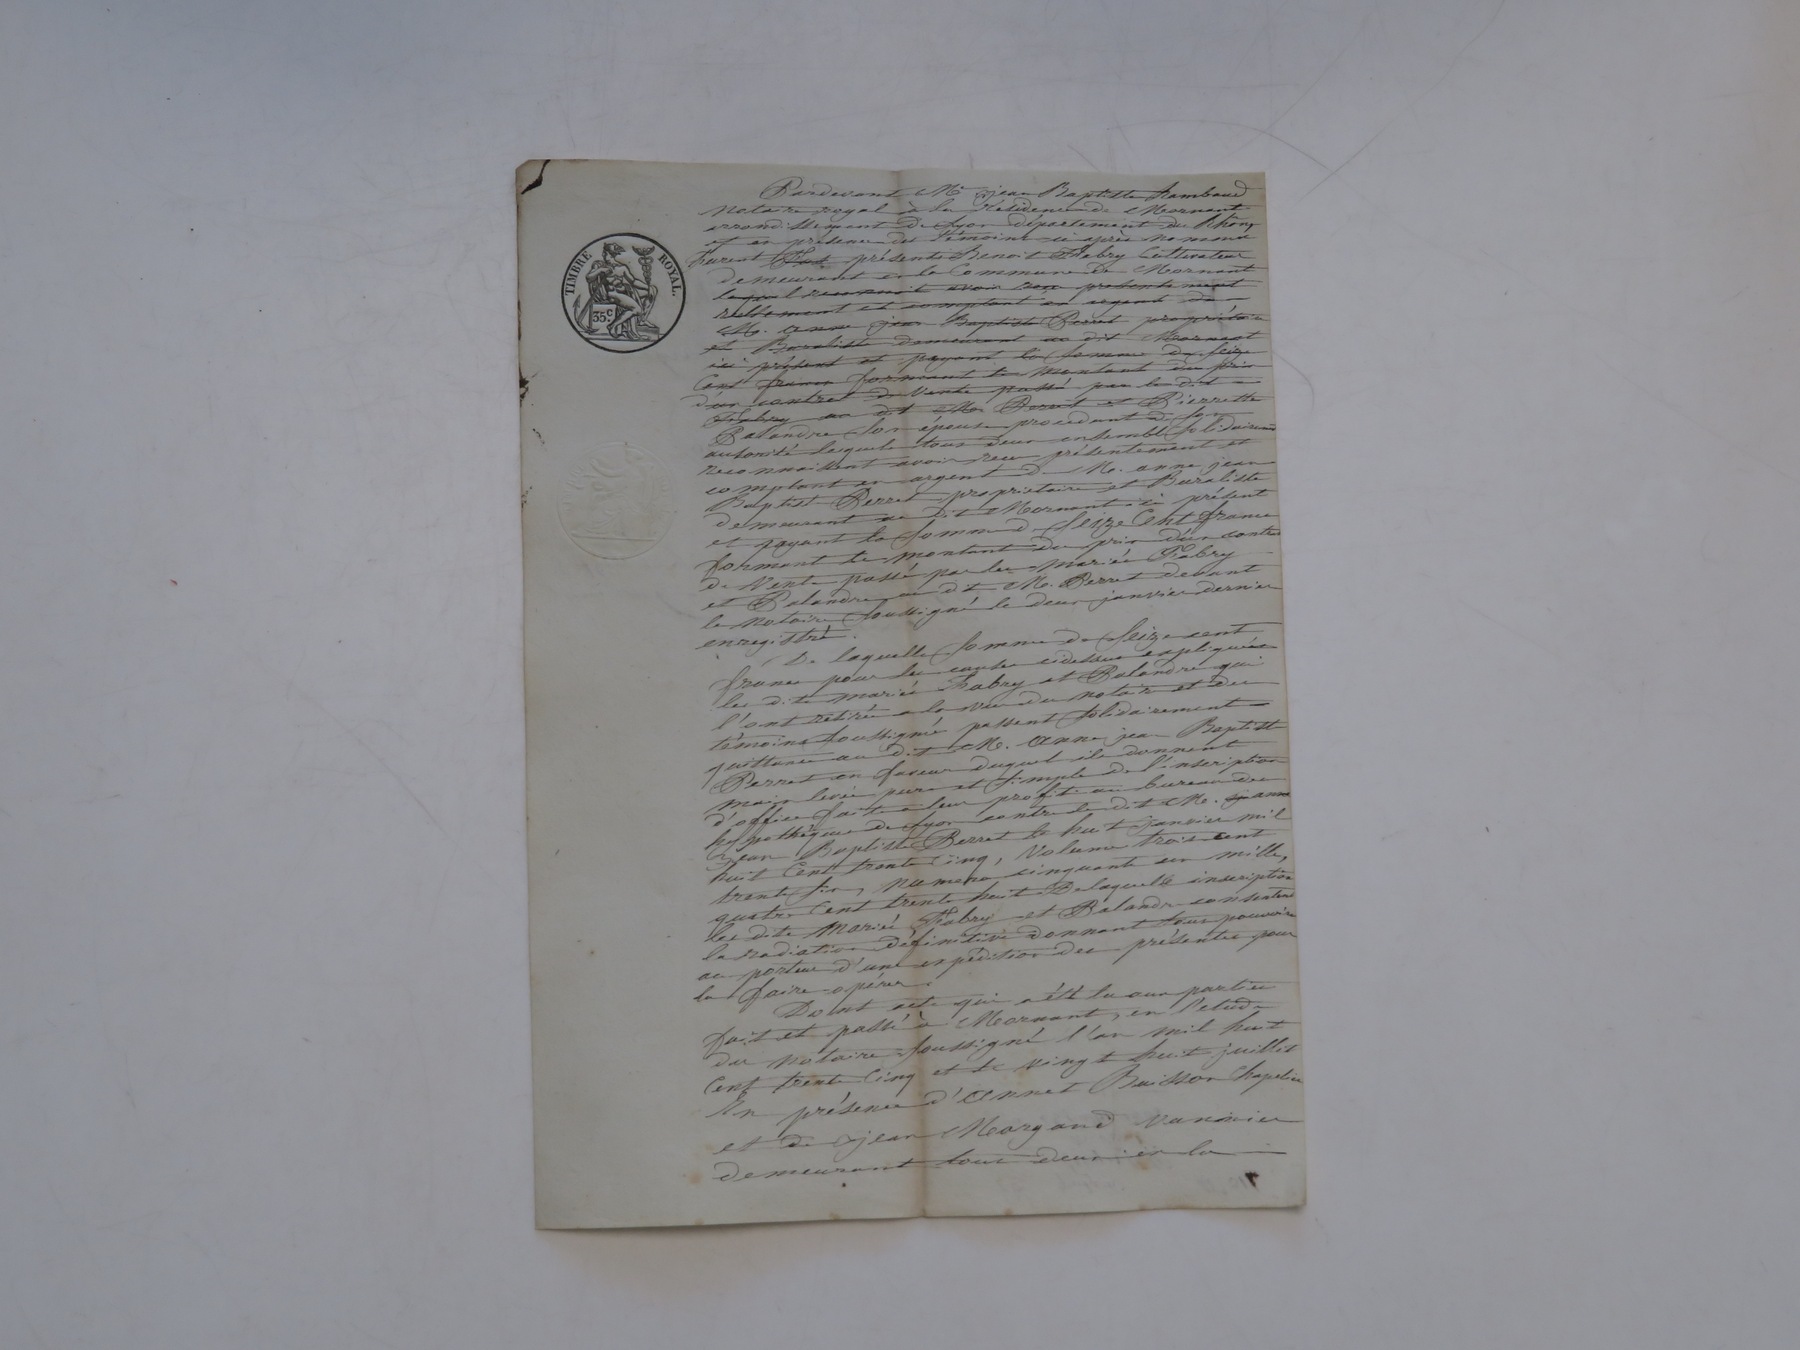 TIMBRE ROYAL.
35c
Pardevant Me jean Baptiste Rambaud
Notaire royal à la résidence de Mornant
arrondissement de Lyon département du Rhône
et en présence des témoins ci après nommés
furent présents Benoit Fabry Cultivateur
demeurant en la Commune de Mornant
lequel reconnait avoir reçu présentement
réellement et comptant en argent de
M. anne jean Baptiste Perret propriétaire
et Buraliste demeurant au dit Mornant
ici présent et payant la somme de Seize
Cent francs formant le montant du prix
d'un contrat de Vente passé par le dit
Fabry au dit M. Perret et Pierrette
Balandre son épouse procédant de son
autorité lesquels tous deux ensemble solidairement
reconnaissent avoir reçu présentement et
comptant en argent de M. anne jean
Baptiste Perret propriétaire et Buraliste
demeurant au dit Mornant ici présent
et payant la somme de Seize Cent francs
formant le montant du prix d'un contrat
de Vente passé par les mariés Fabry
et Balandre au dit M. Perret devant
le notaire soussigné le deux janvier dernier
enregistré.
De laquelle somme de Seize cent
francs pour les causes cidessus expliquées
les dits mariés Fabry et Balandre qui
l'ont retirée a la vue du notaire et des
témoins soussignés passent solidairement
quittance au dit M. anne jean Baptiste
Perret en faveur duquel ils donnent
main levée pure et simple de l'inscription
d'office faite a leur profit au bureau des
hypothèques de Lyon contre le dit M. anne
jean Baptiste Perret le huit janvier mil
huit Cent trente Cinq, Volume trois cent
trente six, numero cinquante un mille,
quatre Cent trente huit De laquelle inscription
les dits Mariés Fabry et Balandre consentent
la radiation définitive donnant tous pouvoirs
au porteur d'une expédition des présentes pour
la faire opérer.
Dont acte qui a été lu aux parties
fait et passé à Mornant, en l'etude
du Notaire soussigné l'an mil huit
Cent trente Cinq et le vingt huit juillet
En présence d'Annet Buisson Chapelier
et de jean Morgand Vannier
demeurant tous deux en la